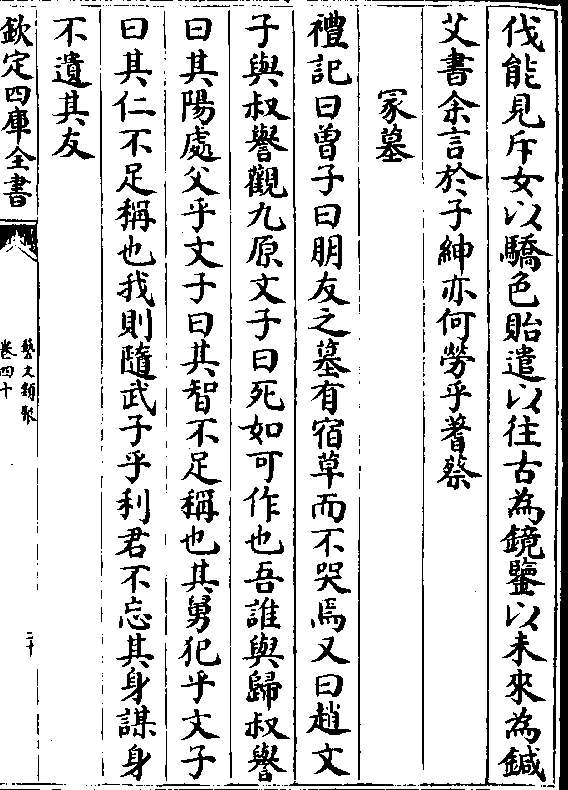 伐能見斥女以驕色貽遣以往古為鏡鑒以未來為鍼
艾書余言於子紳亦何勞乎蓍蔡
冢墓
禮記曰曽子曰朋友之墓有宿草而不哭焉又曰趙文
子與叔譽觀九原文子曰死如可作也吾誰與歸叔譽
曰其陽處父乎文子曰其智不足稱也其舅犯乎文子
曰其仁不足稱也我則隨武子乎利君不忘其身謀身
不遺其友
欽定四庫全書
藝文類聚
卷四十
二十